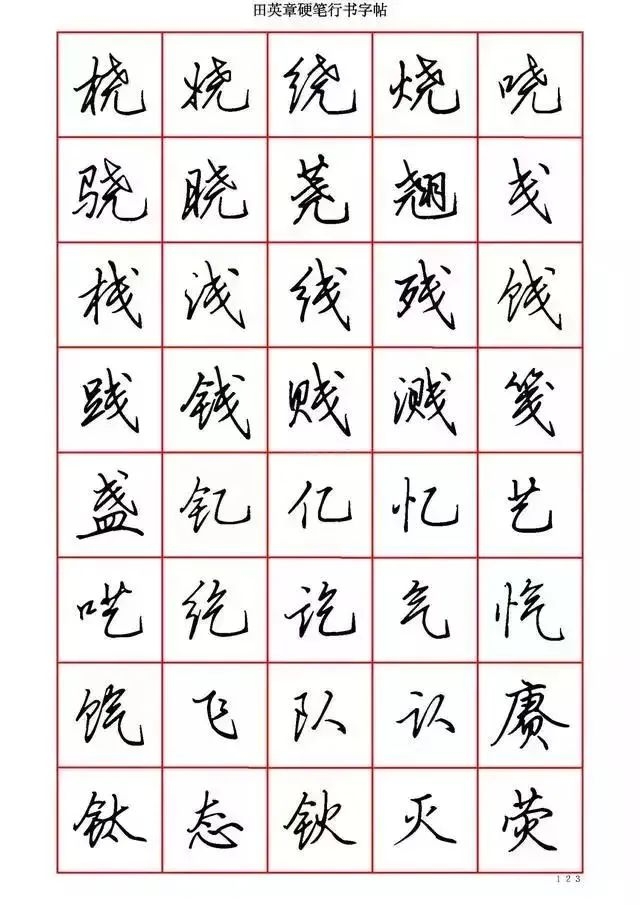 田英章硬笔行书字帖
桡 娆 绕 烧 哓
骁 晓 荛 翘 戋
栈 浅 线 残 饯
践 钱 贱 溅 笺
盏 钇 亿 忆 艺
呓 纥 讫 气 忾
饩 飞 队 认 赓
钛 态 钬 灭 荧
123